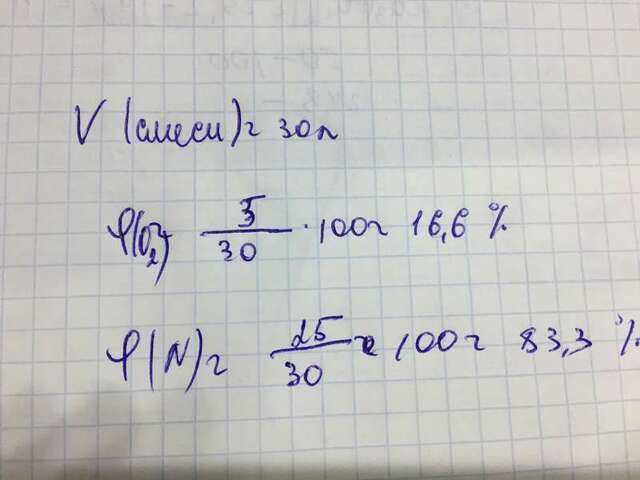 V (смеси) = 30 л
φ(O₂) 5/30 · 100 = 16,6 %
φ(N) = 25/30 · 100 = 83,3 %